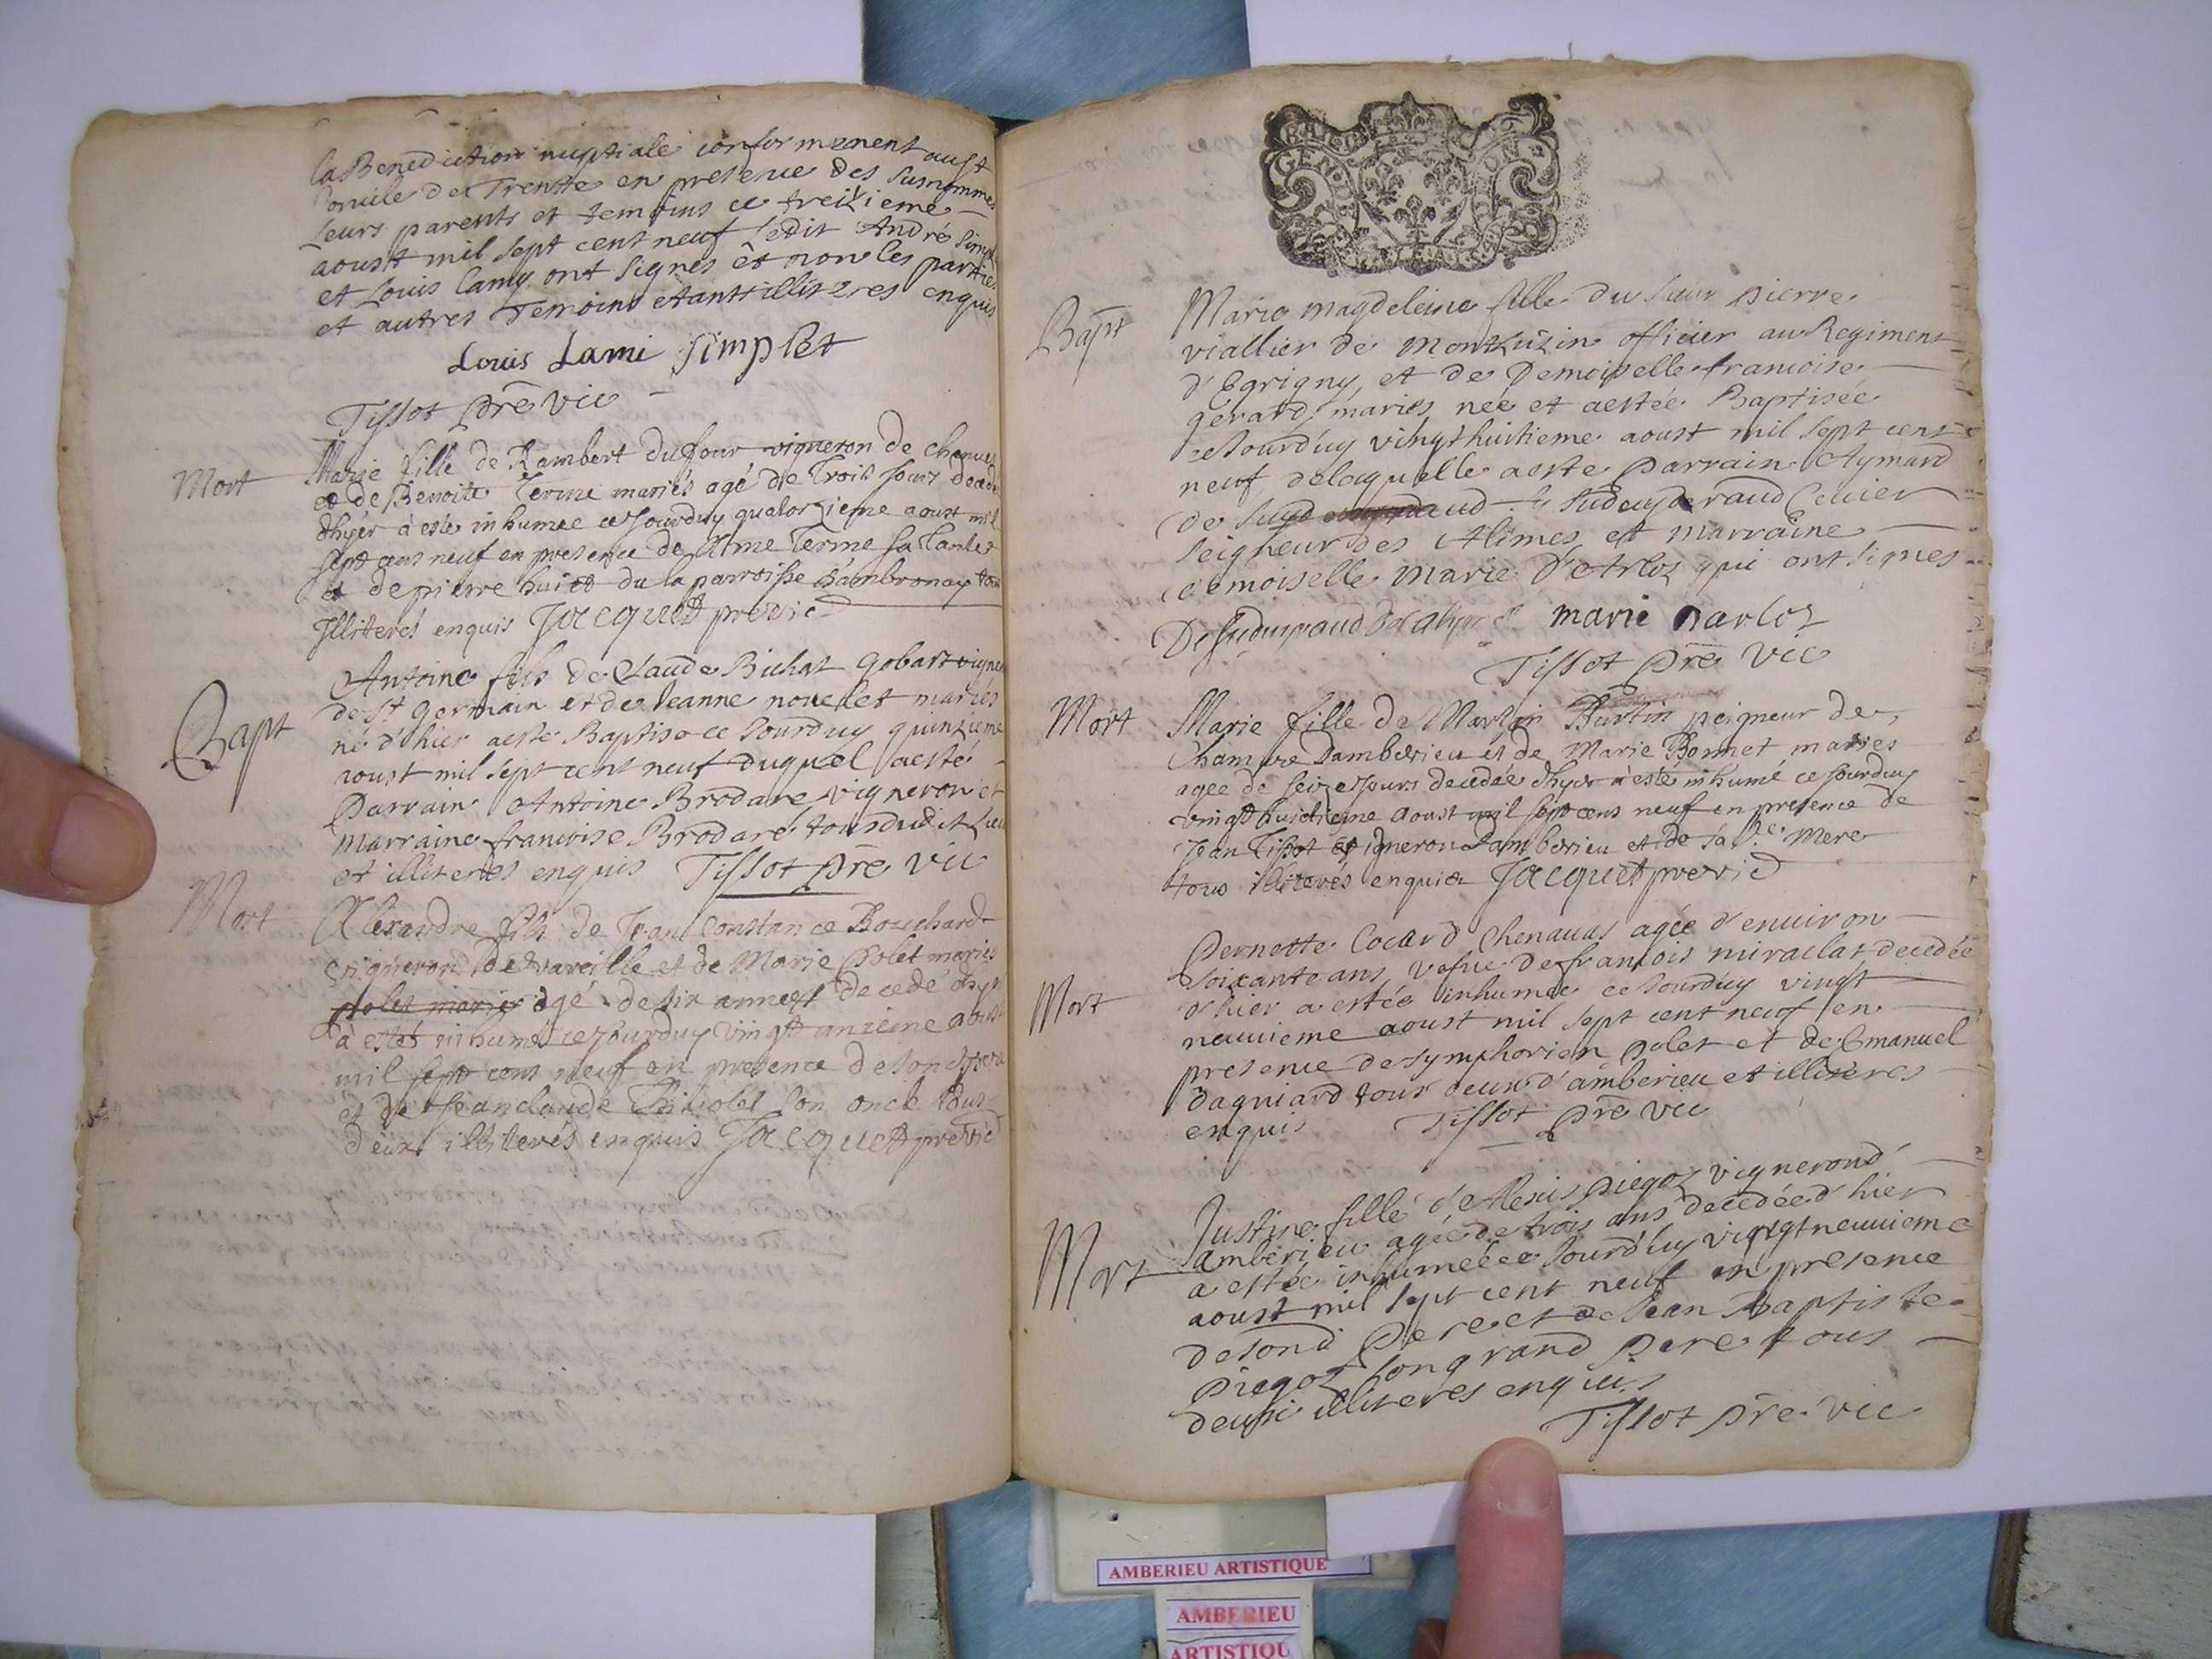 la Benediction nuptiale conformement au St
Concile de Trente en presence des susnommes
Leurs parents et temoins ce treizieme
aoust mil sept cent neuf ledit André Simplet
et Louis Lamy ont signes et non les parties
et autres Temoins etants illiteres enquis
Louis Lami Simplet
Tissot pre vic
Mort
Marie fille de Rambert du four vigneron de Chenaves
et de Benoite Terme mariés agé de Trois jours decedé
dhyer à esté inhumée ce jourduy quatorzieme aoust mil
sept cens neuf en presence de Terme sa Tante
et de pierre huiet de la parroisse dambronay tous
Illiterés enquis Jacquet pre vic
Bapt
Antoine fils de Claude Bichat Gobart vigneron
de St Germain et de Jeanne novellet mariés
né d'hier a esté Baptisé ce Jourduy quinzieme
aoust mil sept cent neuf duquel a esté
Parrain Antoine Brodare vigneron et
marraine francoise Brodare tous dudit lieu
et illiteres enquis Tissot pre vic
Mort
Alexandre fils de Jean Constance Bouchard
vigneron de vareille et de Marie Polet mariés
polet mariés agé de six annees decedé dhyer
à esté inhumé ce jourduy vingt unieme aoust
mil sept cens neuf en presence de sond pere
et de Jeanclaude son oncle tous
deux illiterés enquis Jacquet pre vic
GEN
Bapt
Marie magdeleine fille du sieur pierre
viallier de Montzuzin officier au Regiment
d'Egrigny, et de Demoiselle francoise
gerard mariés née et a estée Baptisée
ce Jourduy vingthuitieme aoust mil sept cent
neuf de laquelle a esté Parrain Aymard
de
Seigneur des Alimes et marraine
demoiselle Marie D'Arloz qui ont signes
marie darloz
Tissot pre vic
Mort
Marie fille de Martin Burtin peigneur de
Chamvre Damberieu et de Marie Bonnet maries
agee de seize jours decedée dhyer à esté inhumé ce jourduy
vingt huictieme aoust mil sept cens neuf en presence de
Jean Tissot vigneron Damberieu et de sad.e Mere
tous illiterés enquis Jacquet pre vic
Mort
Pernette Cocard Chenavas agée d'environ
soixante ans, vefue de francois miraclat decedée
d'hier a estée inhumée ce Jourduy vingt
neuuieme aoust mil sept cent neuf en
presence de symphorien polet et de Emanuel
dagniard tous deux d'amberieu et illiteres
enquis Tissot pre vic
Mort
Justine fille d'Alexis piegoz vigneron d'
amberieu agée de trois ans decedée d'hier
a estée inhumée ce Jourduy vingt neuuieme
aoust mil sept cent neuf en presence
de sond Pere et de Jean Baptiste
Piegoz son grand Pere tous
deux illiteres enquis
Tissot pre vic
AMBERIEU ARTISTIQUE
AMBERIEU
ARTISTIQU